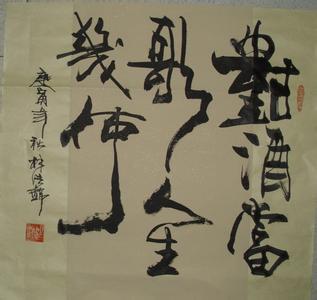 對酒當
歌人生
幾何
庚寅年秋